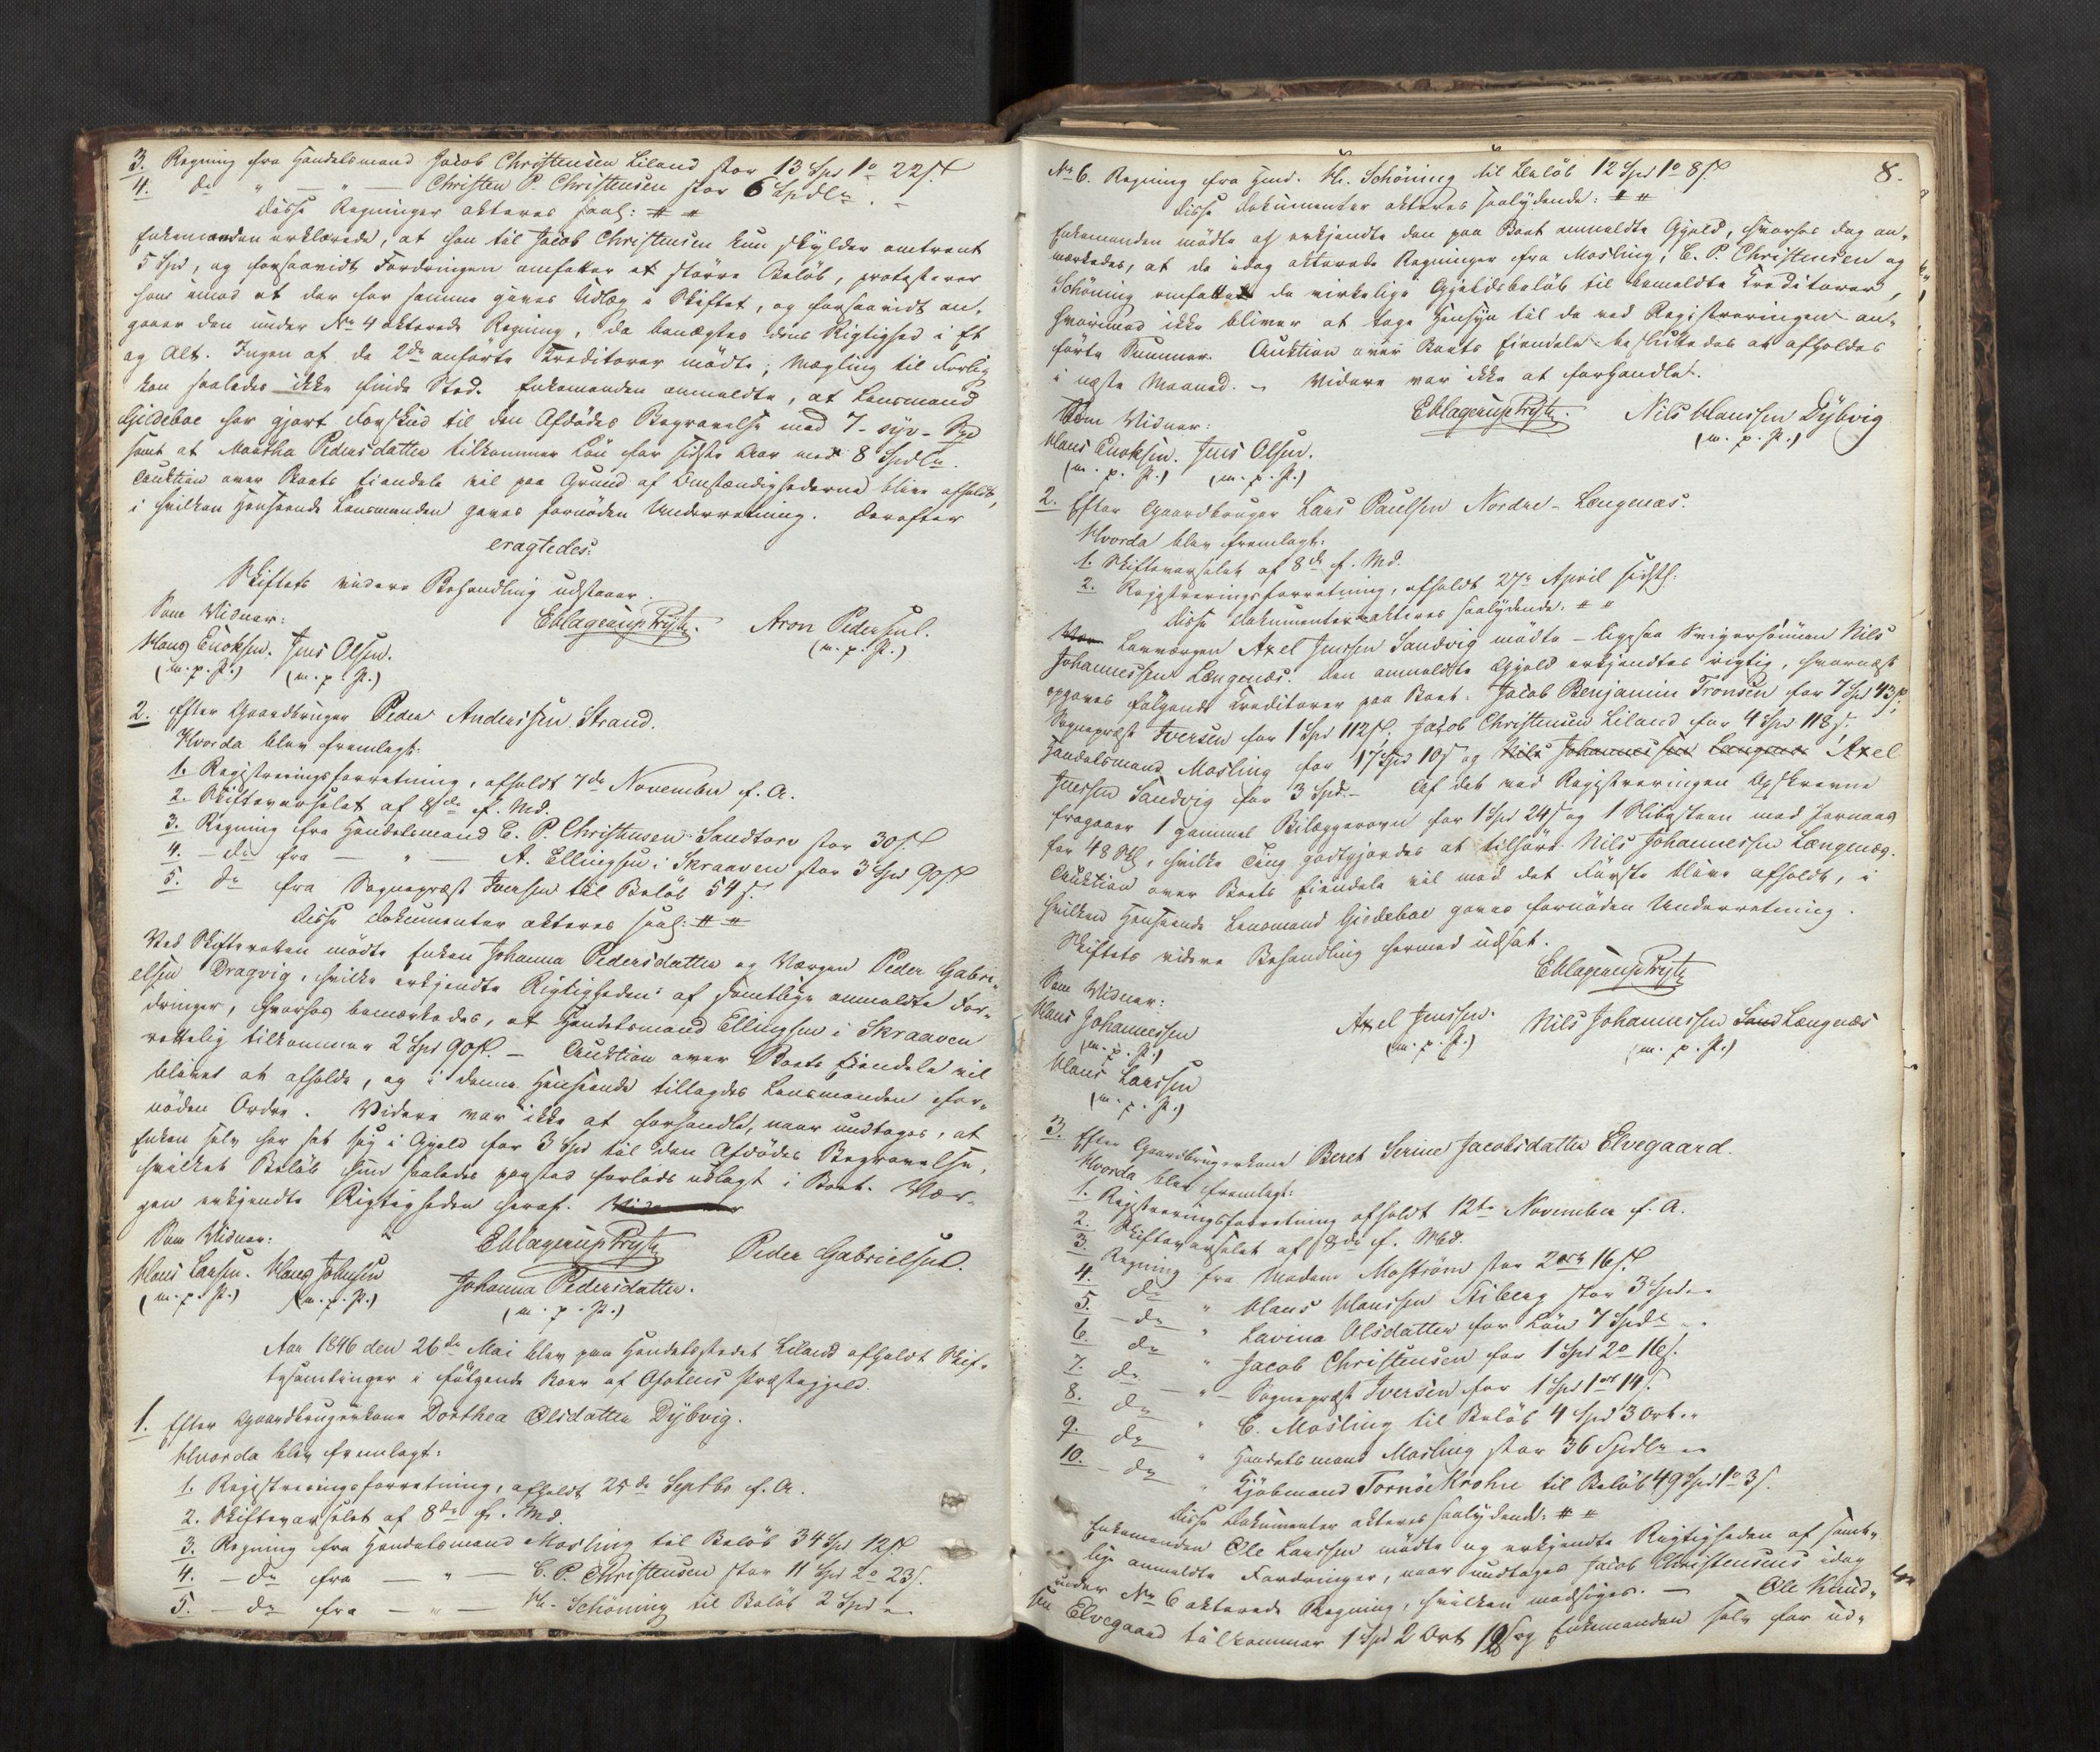 3. Regning fra Handelsmand Jacob Christensen Liland stor 13 Spd 1o 22 s.
4. do " — " — Christen P. Christensen stor 6 Spdlr. –
disse Regninger akteres saal: # #
Enkemanden erklærede, at han til Jacob Christensen kun skylder omtrent
5 Spd, og forsaavidt Fordringen omfatter et större Belöb, protesterer
han imod at der for samme gives Udlæg i Skiftet, og forsaavidt an-
gaaer den under No 4 akterede Regning, da benægtes dens Rigtighed i Et
og Alt. Ingen af de 2de anförte Creditorer mödte; Mægling til Forlig
kan saaledes ikke finde Sted. Enkemanden anmeldte, at Lensmand
Gjildeboe har gjort Forskud til den Afdödes Begravelse med 7 - syv - Spd
samt at Martha Pedersdatter tilkommer Lön for sidste Aar med 8 Spdlr.
Auktion over Boets Eiendele vil paa Grund af Omstændighederne blive afholdt,
i hvilken Henseende Lensmanden gives fornöden Underretning. Derefter
eragtedes:
Skiftets videre Behandling udstaaer.
Som Vidner:
Hans Enoksen. Jens Olsen.
(m. p. P.) (m. p. P.)
EklagerupPrytz. Aron Pedersen.
(m. p. P.)
2. Efter Gaardbruger Peder Anderssen Strand.
Hvorda blev fremlagt:
1. Registreringsforretning, afholdt 7de November f. A.
2. Skiftevarselet af 8de f. Md.
3. Regning fra Handelsmand C. P. Christensen Sandtorv stor 30 s.
4. – do fra — " — A. Ellingsen i Skraaven stor 3 Spd 90 s.
5. do fra Sognepræst Iversen til Belöb 54 s.
disse Dokumenter akteres saal: # #
Ved Skifteretten mödte Enken Johanna Pedersdatter og Værgen Peder Gabri-
elsen Dragvig, hvilke erkjendte Rigtigheden af samtlige anmeldte For-
dringer, hvorhos bemærkedes, at Handelsmand Ellingsen i Skraaven
rettelig tilkommer 2 Spd 90 s. – Auktion over Boets Eiendele vil
blive at afholde, og i denne Henseende tillagdes Lensmanden for-
nöden Ordre. Videre var ikke at forhandle, naar undtages, at
Enken selv har sat sig i Gjeld for 3 Spd til den Afdödes Begravelse,
hvilket Belöb hun saaledes paastod forlods udlagt i Boet. Vær-
gen erkjendte Rigtigheden heraf.
Som Vidner:
Hans Larsen. Hans Johnsen
(m. p. P.) (m. p. P.)
EklagerupPrytz Peder Gabrielsen.
Johanna Pedersdatter.
(m. p. P.)
Aar 1846 den 26de Mai blev paa Handelsstedet Liland afholdt Skif-
tesamlinger i fölgende Boer af Ofotens Præstegjeld.
1. Efter Gaardbrugerkone Dorthea Olsdatter Dÿbvig.
Hvorda blev fremlagt:
1. Registreringsforretning, afholdt 25de Septbr f. A.
2. Skiftevarselet af 8de f. Md.
3. Regning fra Handelsmand Mosling til Belöb 34 Spd 12 s.
4. – do fra — " — C. P. Christensen stor 11 Spd 2o 23 s.
5. – do fra — " — H. Schöning til Belöb 2 Spd –
8.
No 6. Regning fra Hmd. H. Schöning til Belöb 12 Spd 1o 8 s.
Disse Dokumenter akteres saalydende: # #
Enkemanden mödte og erkjendte den paa Boet anmeldte Gjeld, hvorhos dog an-
mærkedes, at de idag akterede Regninger fra Mosling, C. P. Christensen og
Schöning omfatter de virkelige Gjeldsbelöb til bemeldte Creditorer,
hvorimod ikke bliver at tage Hensyn til de ved Registreringen an-
förte Summer. Auktion over Boets Eiendele besluttedes at afholdes
i næste Maaned. – Videre var ikke at forhandle.
Som Vidner:
Hans Enoksen. Jens Olsen.
(m. p. P.) (m. p. P.)
EklagerupPrytz. Nils Hanssen Dÿbvig
(m. p. P.)
2. Efter Gaardbruger Lars Paulsen Nordre-Lengenæs.
Hvorda blev fremlagt:
1. Skiftevarselet af 8de f. Md.
2. Registreringsforretning, afholdt 27de April sidstl.
Disse Dokumenter akteres saalydende: # #
Laverværgen Axel Jenssen Sandvig mödte – ligesaa Svigersönnen Nils
Johannessen Længenæs. Den anmeldte Gjeld erkjendtes rigtig, hvornæst
opgaves fölgende Creditorer paa Boet. Jacob Benjamin Tronsen for 7 Spd 43 s;
Sognepræst Iversen for 1 Spd 112 s. Jacob Christensen Liland for 4 Spd 118 s.
Handelsmand Mosling for 17 Spd 10 s og Nils Johannessen Længenæs Axel
Jenssen Sandvig for 3 Spd. – Af det ved Registreringen Opskrevne
fragaaer 1 gammel Bilæggerovn for 1 Spd 24 s og 1 Slibesteen med Jernaas
for 48 s, hvilke Ting godtgjordes at tilhöre Nils Johannessen Længenæs.
Auktion over Boets Eiendele vil med det Förste blive afholdt, i
hvilken Henseende Lensmand Gjildeboe gives fornöden Underretning.
Skiftets videre Behandling hermed udsat.
EklagerupPrytz
Som Vidner:
Hans Johannessen
(m. p. P.)
Hans Larssen
(m. p. P.)
Axel Jenssen. Nils Johannessen Sand Længnæs
(m. p. P.) (m. p. P.)
3. Efter Gaardbrugerkone Beret Serine Jacobsdatter Elvegaard.
Hvorda blev fremlagt:
1. Registreringsforretning afholdt 12te November f. A.
2. Skiftevarselet af 8de f. Md.
3. Regning fra Madam Moström stor 2 ort 16 s.
4. do " Hans Hanssen Stiberg stor 3 Spd –
5. – do " Lavina Olsdatter for Lön 7 Spdl –
6. do " Jacob Christensen for 1 Spd 2o 16 s.
7. do – " – Sognepræst Iversen for 1 Spd 1 ort 14 s.
8. do " C. Mosling til Belöb 4 Spd 3 Ort –
9. do " Handelsmand Mosling stor 36 Spdlr –
10. – do " Kjöbmand Tornöe Krohn til Belöb 49 Spd 1o 3 s.
Disse Dokumenter akteres saalydende: # #
Enkemanden Ole Larssen mödte og erkjendte Rigtigheden af samt-
lige anmeldte Fordringer, naar undtages Jacob Christensens idag
under No 6 akterede Regning, hvilken modsiges. – Ole Knud-
sen Elvegaard tilkommer 1 Spd 2 Ort og Enkemanden selv har ud-